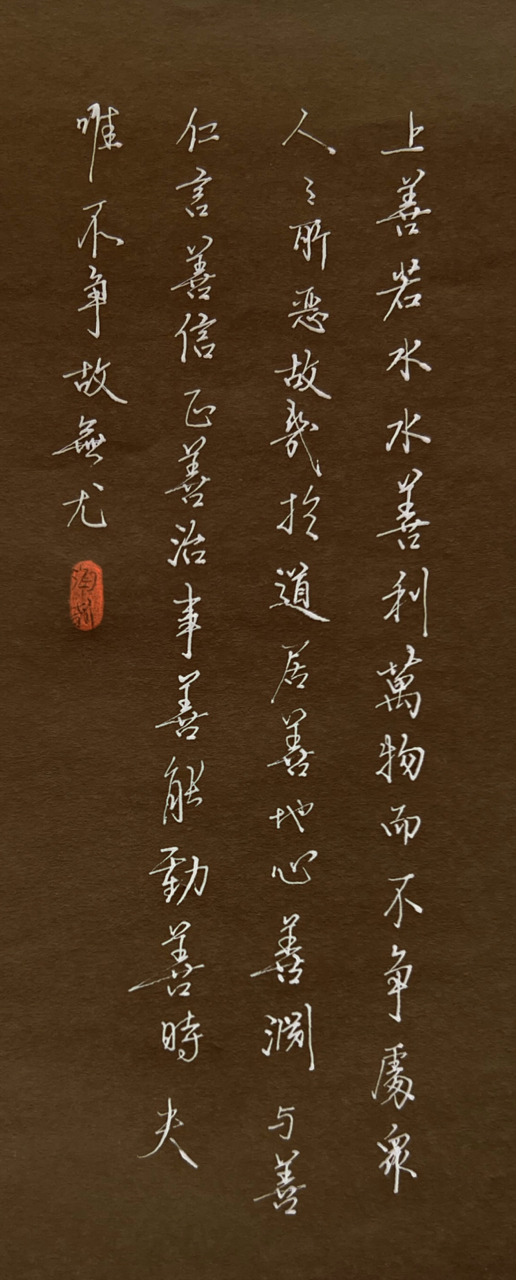 上善若水水善利萬物而不争處衆
人之所惡故幾於道居善地心善淵与善
仁言善信正善治事善能動善時夫
唯不争故無尤